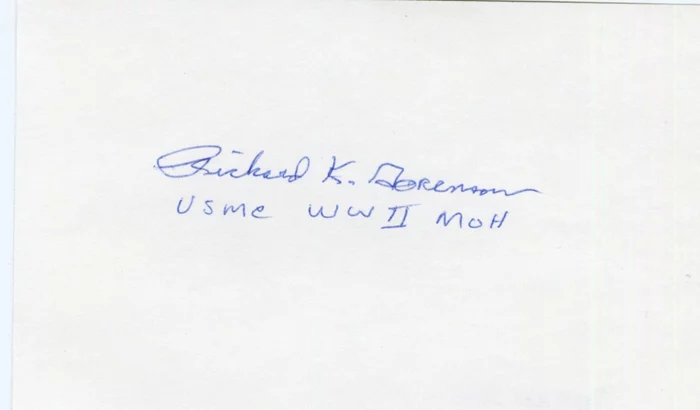 Richard K. Sorenson
USMC WW II MOH